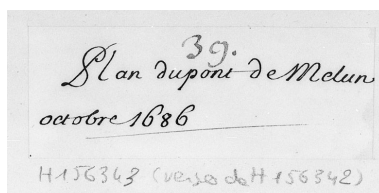 39.
Plan dupont de Melun
octobre 1686
H156343 (verso de H156342)